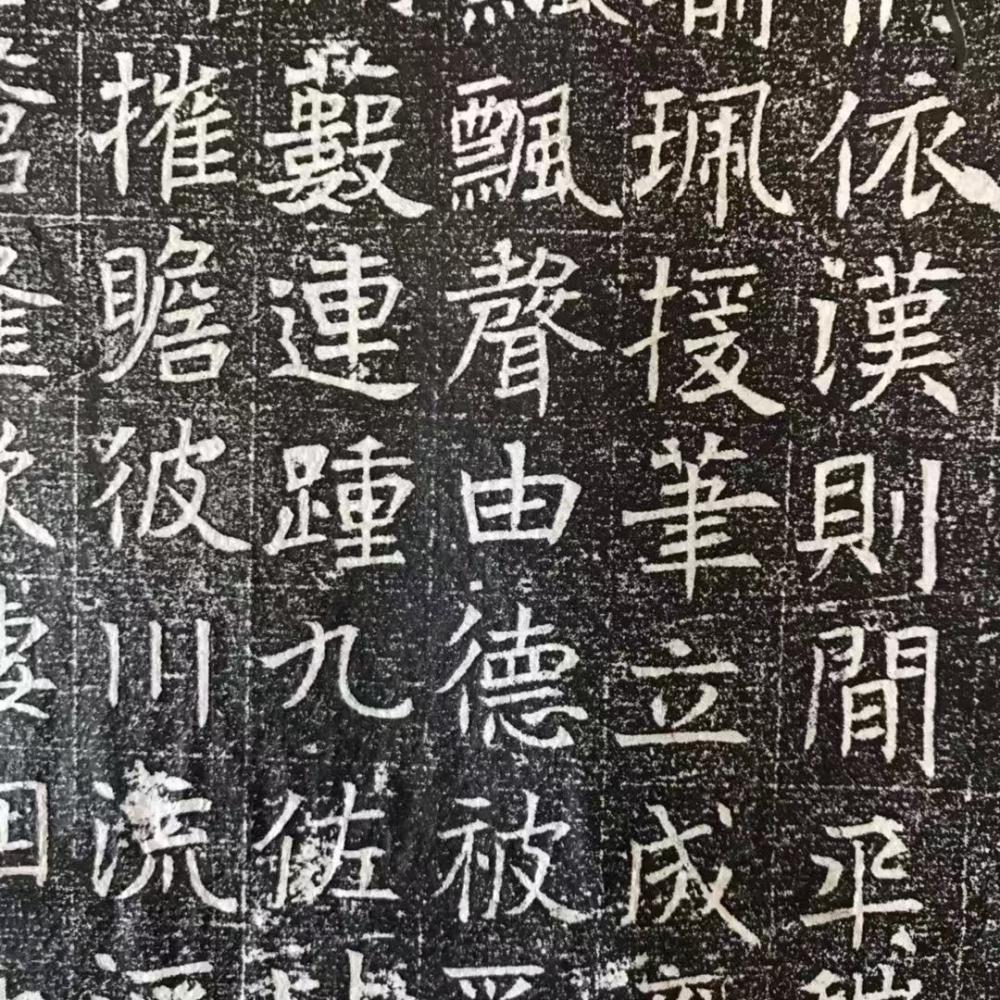 依漢則間平
珮援筆立成
飄聲由德被
藪連踵九佐
摧瞻彼川流